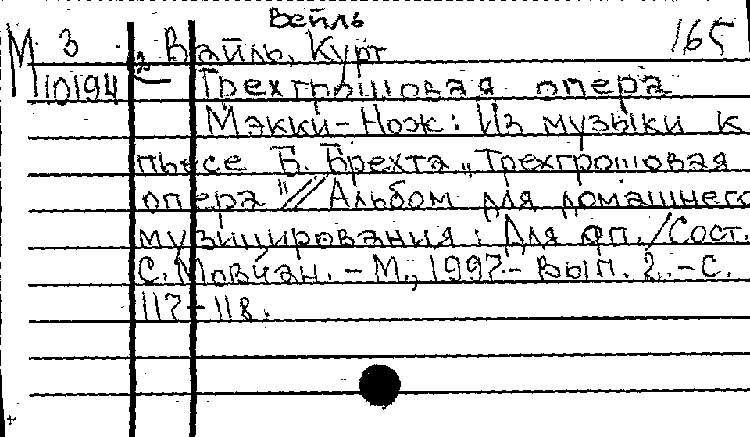 Вейль
М 3 Вайль, Курт 165
10194 Трехгрошовая опера
Мэкки-Нож: Из музыки к
пьесе Б. Брехта „Трехгрошовая
опера"//Альбом для домашнего
музицирования: Для фп./Сост.
С. Мовчан. - М., 1997. - Вып. 2. - С.
117-118.